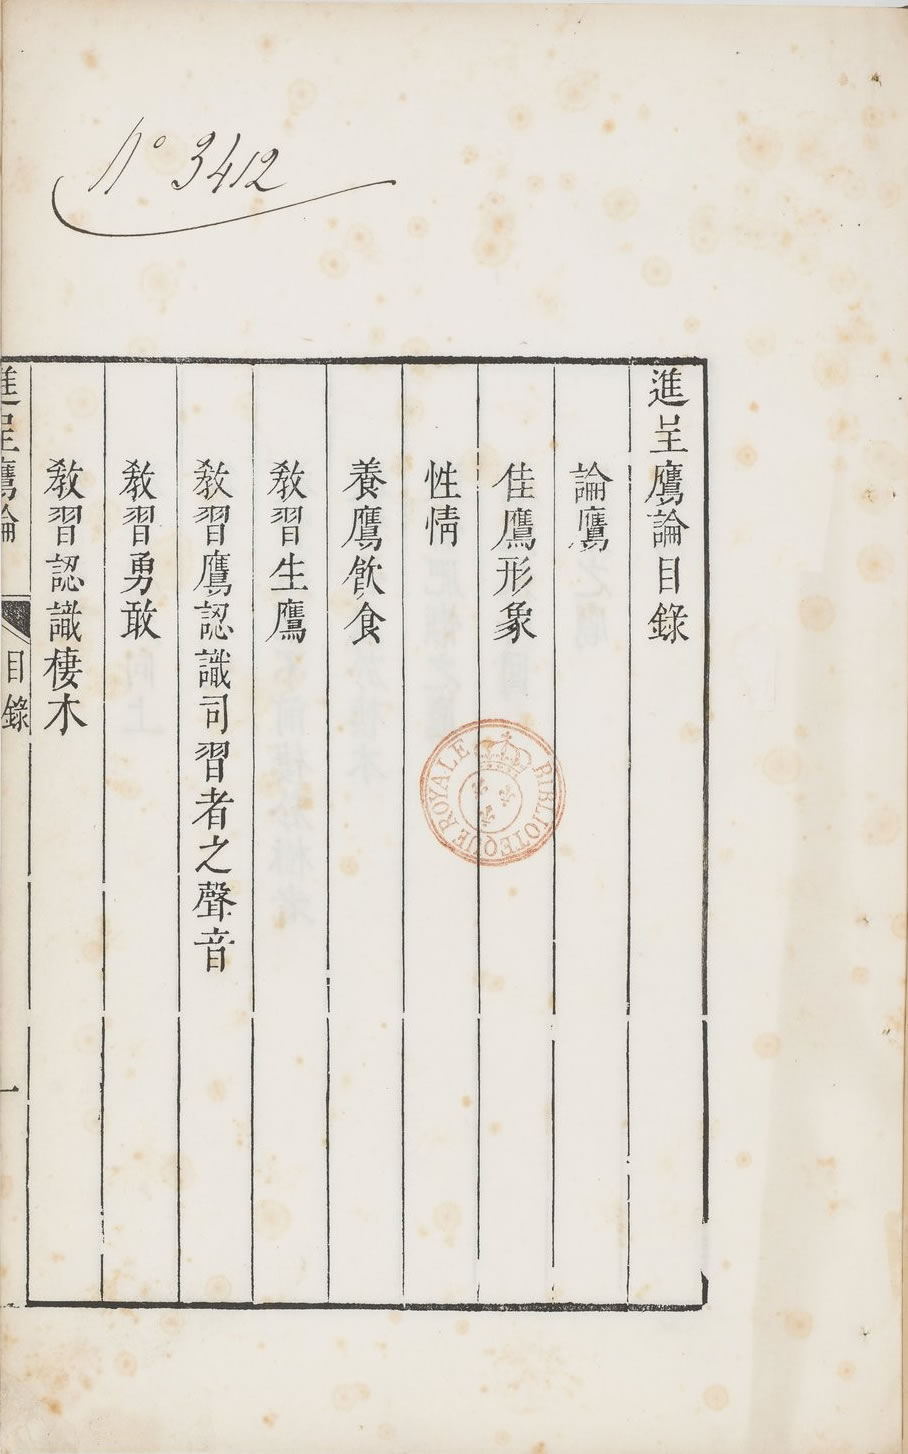 Nº 3412
進呈鷹論目錄
論鷹
佳鷹形象
性情
養鷹飲食
教習生鷹
教習鷹認識司習者之聲音
教習勇敢
教習認識棲木
進呈鷹論
目錄
一
BIBLIOTEQUE ROYALE